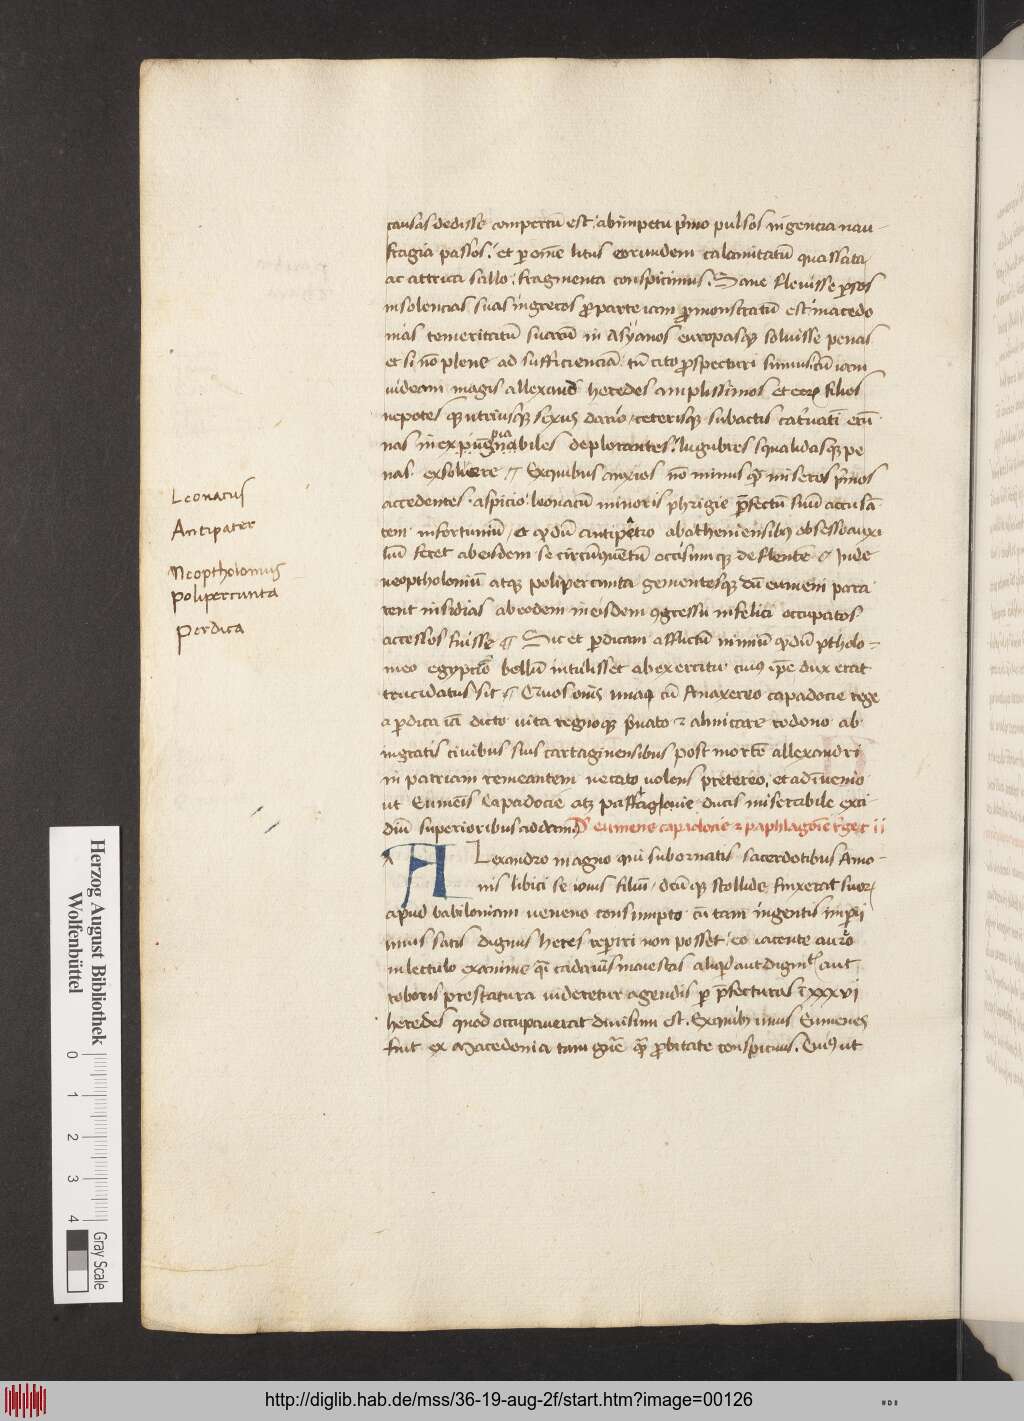 causas dedisse compertū est, ab impetu p̄mo pulsos ingencia nau-
fragia passos, et p om̄e litus eorundem calamitatū quassata
ac attrita sallo, fragmenta conspicimus. Sane flevisse p̱sos
insolencias suas in grecos p̱ parte iam p̱monstratū est, macedo
nias temeritatū suarū in Asyanos europasq; soluisse penas
et si nō plene ad sufficienciā, tū cito p̱specturi sumus, cū iam
uideam magis allexand heredes amplissimos et eoꝝ filios
nepotes q; utriusq; sexus dario, ceterisq; subactis
nas inexpugnabiles deplorantes, lugubres squalidasq; pe
nas exsoluere. Ex quibus anxios nō minus q̄ miseros p̄mos
accedentes aspicio leonatū minoris phrigie p̄fectū suū accusā
tem infortuniū, et q̱dū antipatro ab atheniensibꝫ obsesso auxi
liū feret ab eisdem se circūuentū occisumq; deflentē. Inde
neoptholomū atq; polipercunta gementesq; dū eumeni para
rent insidias ab eodem in eisdem ꝯgressu infelici occupatos
accessos fuisse. Sic et p̱dicam afflictū nimiū q̱dū ptholo-
meo egyptio bellū intulisset ab exercitu cuiꝰ ip̄e dux erat
trucidatus sit. Quos om̄s unaq; cū Anaxereo capadocie rege
a p̱dica iā dicto uita regnoq; p̱uato ⁊ almicare rodono ab
ingratis ciuibus suis cartaginensibus post mortē allexandri
in patriam remeantem necato uolens pretereo, et ad īuenio
ut Eumeīs Capadocie atq; paffaglonie ducis miserabile exci
diū superioribus addam. D eumene capadocie ⁊ paphlagōie r̄ge c ii
ALexandro magno qui subornatis sacerdotibus Amo-
nis libici se iouis filiū, deūq; stollide finxerat suoꝝ
apud babiloniam ueneno consumpto cū tam ingentis imperii
unus satis dignus heres reperiri non posset, eo iacente auro
in lectulo exanime q̄ cadauūs maiestas aliq̱d aut dignitatis aut
roboris prestatura uideretur agendis p p̄fecturas ī xxxvi
heredes quod occupauerat diuisum est. Ex quibꝫ unus Eumenes
fuit ex Macedonia tam gn̄e q̄ p̱bitate conspicuus. Cuiꝰ ut
Leonatus
Antipater
Neoptholomus
polipercunta
perdica
Herzog August Bibliothek
Wolfenbüttel
0 1 2 3 4
Gray Scale
http://diglib.hab.de/mss/36-19-aug-2f/start.htm?image=00126